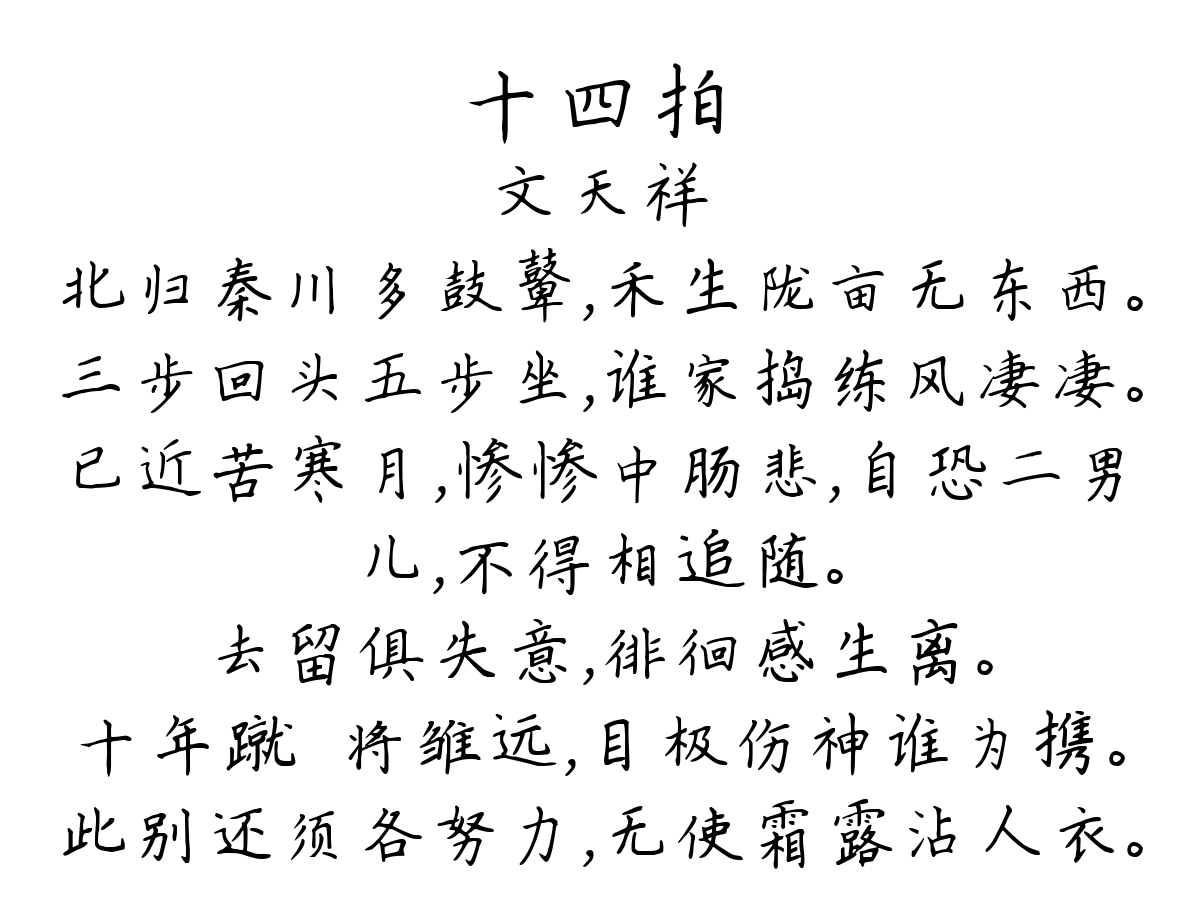 十四拍
文天祥
北归秦川多鼓鼙,禾生陇亩无东西。
三步回头五步坐,谁家捣练风凄凄。
已近苦寒月,惨惨中肠悲,自恐二男
儿,不得相追随。
去留俱失意,徘徊感生离。
十年蹴 将雏远,目极伤神谁为携。
此别还须各努力,无使霜露沾人衣。